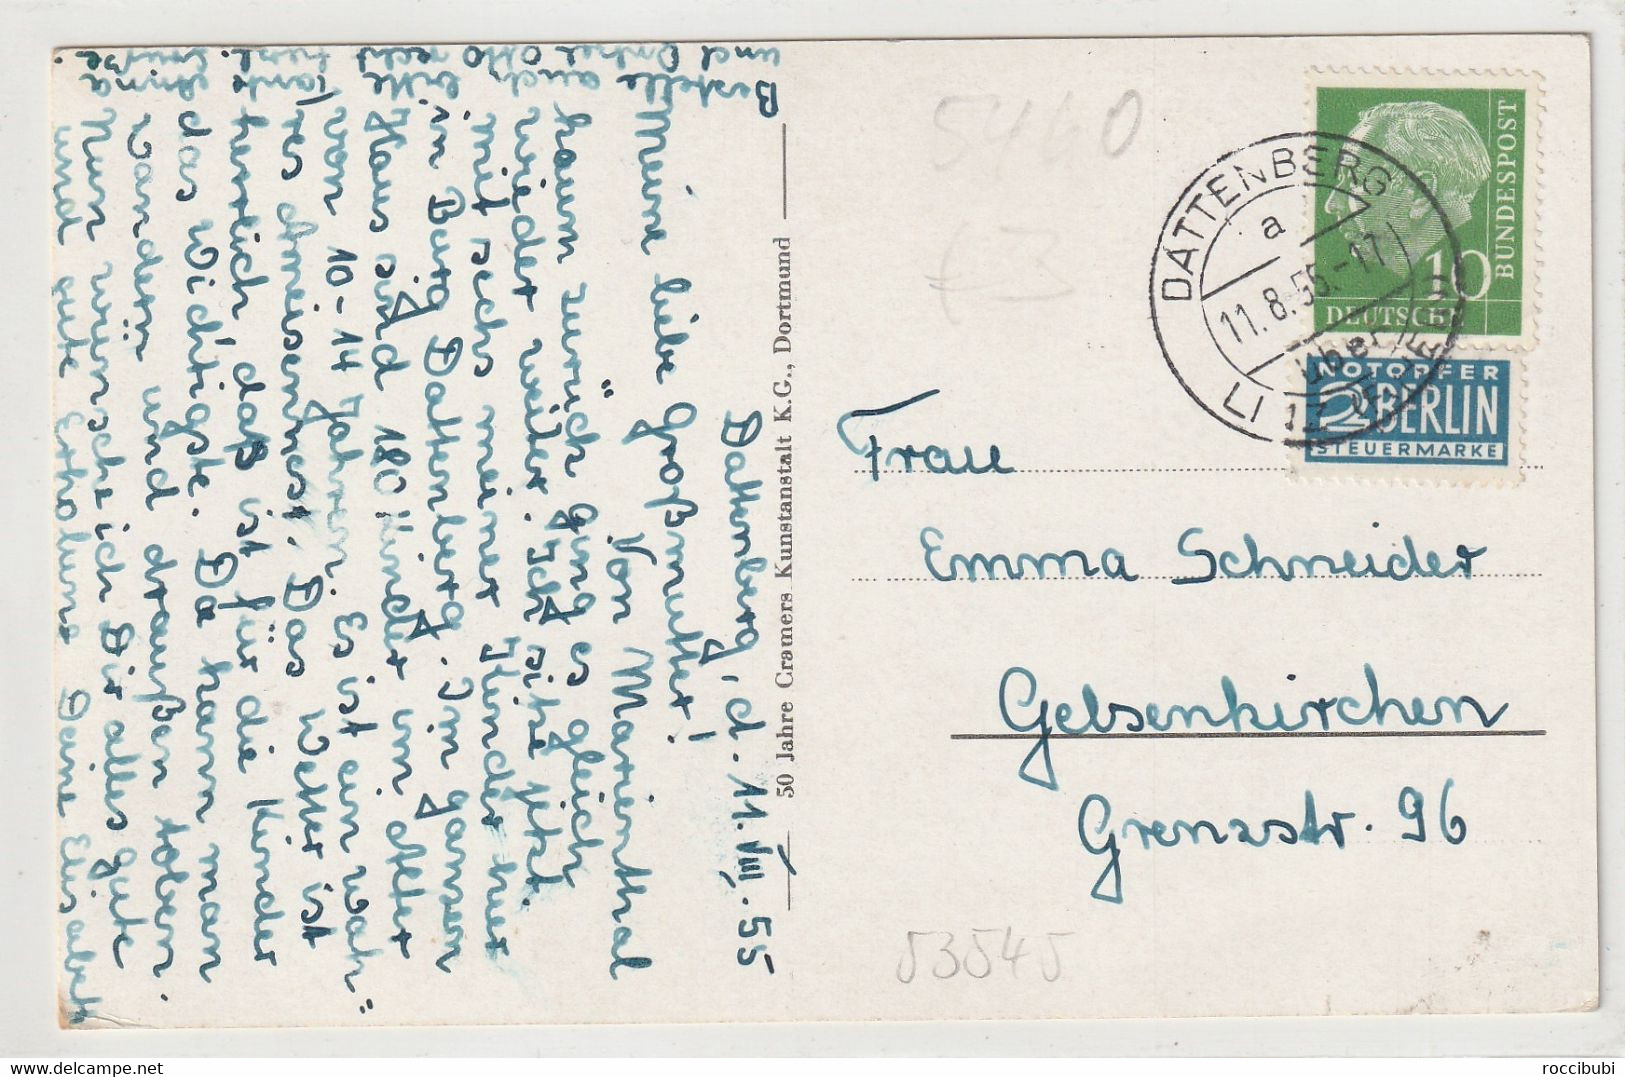 Dattenberg, d. 11. VIII. 55
Meine liebe Großmutter!
Von Marienthal
kaum zurück ging es gleich
wieder weiter. Ich sitze jetzt
mit sechs meiner Kinder hier
in Burg Dattenberg. Im ganzen
Haus sind 180 Kinder im Alter
von 10-14 Jahren. Es ist ein wah-
res Ameisennest. Das Wetter ist
herrlich, daß ist für die Kinder
das Wichtigste. Da kann man
wandern und draußen toben.
Nun wünsche ich Dir alles gute
und gute Erholung Deine Elisabeth
Bestelle auch bitte Tante Anna
und Onkel Otto recht herzl. Grüße.
50 Jahre Cramers Kunstanstalt K.G., Dortmund
5440
53545
DATTENBERG
a
11.8.55.-17
über LINZ (RHEIN)
BUNDESPOST
10
DEUTSCHE
NOTOPFER
2 BERLIN
STEUERMARKE
Frau
Emma Schneider
Gelsenkirchen
Grenzstr. 96
roccibubi